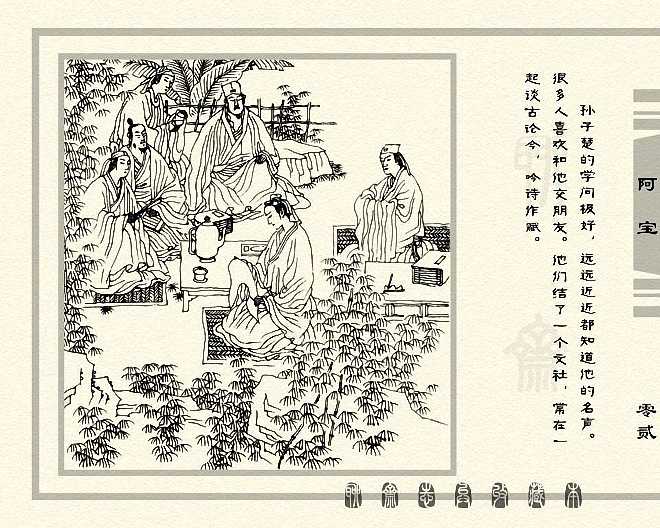 孙子楚的学问极好，远远近近都知道他的名声。
很多人喜欢和他交朋友。他们结了一个文社，常在一
起谈古论今，吟诗作赋。
阿宝
零贰